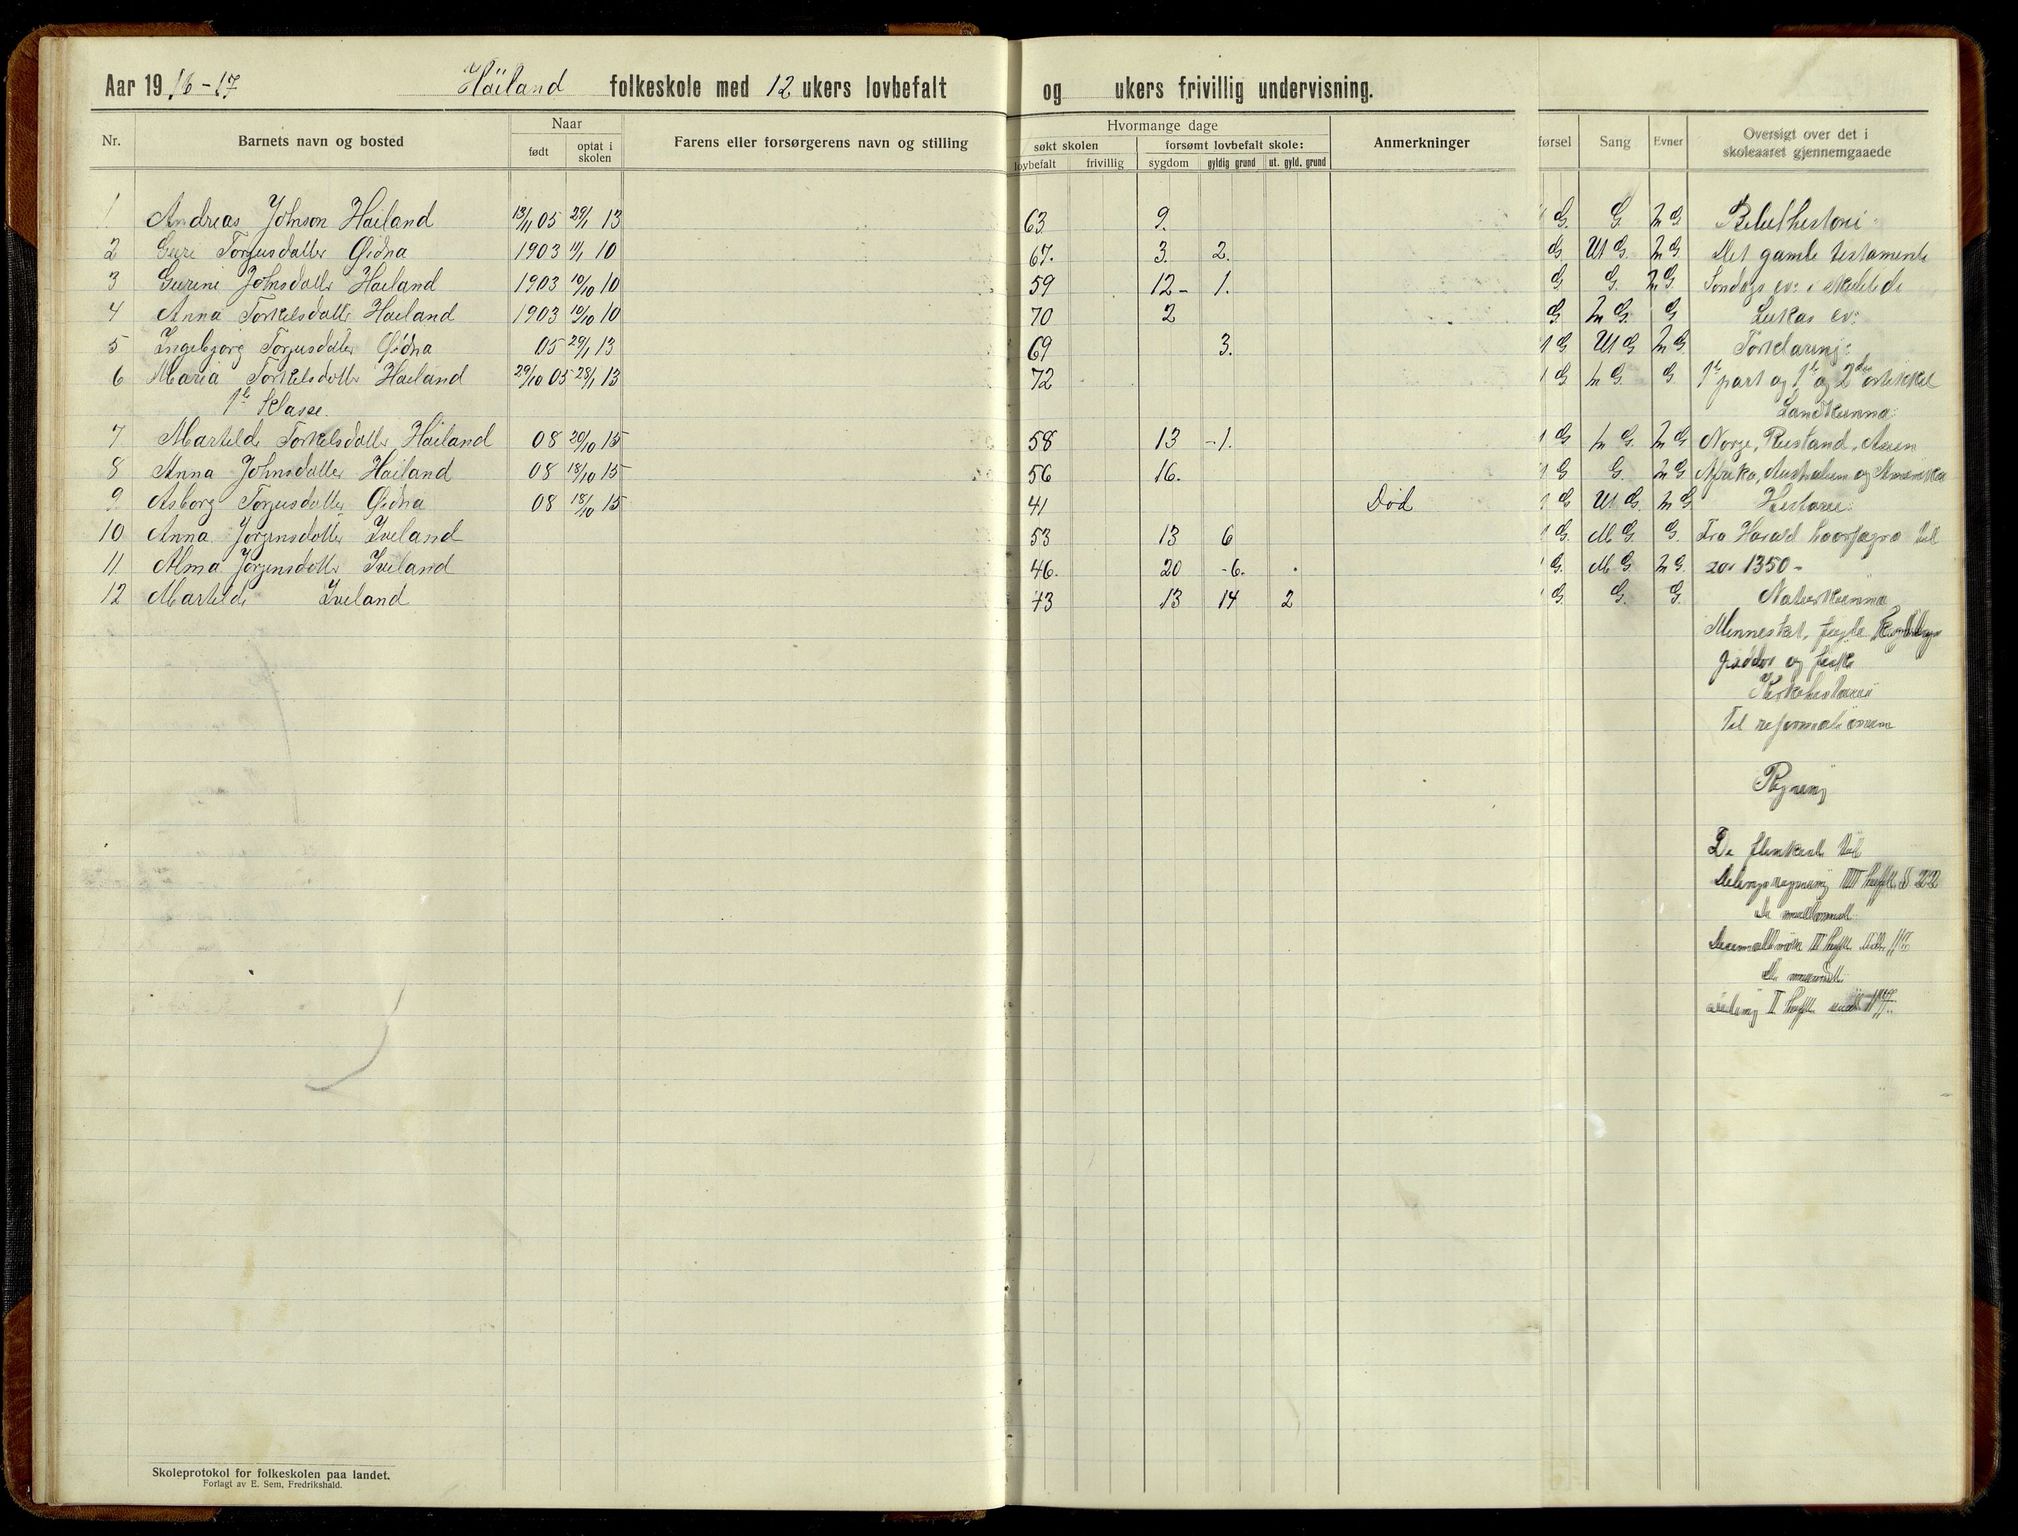 Aar 1916-17 Håiland folkeskole med 12 ukers lovbefalt og ukers frivillig undervisning.
Nr. Barnets navn og bosted Naar født optat i skolen Farens eller forsørgerens navn og stilling Hvormange dage søkt skolen lovbefalt frivillig forsømt lovbefalt skole: sygdom gyldig grund ut. gyld. grund Anmerkninger førsel Sang Evner Oversigt over det i skoleaaret gjennemgaaede
1 Andreas Johnson Hailand 13/11 05 29/1 13 63 9. G. G M G Bibelhestorie:
2 Guri Torjusdatter Øidna 1903 11/1 10 67. 3. 2. G Ut G. M G. Det gamle testamente
3 Gurine Johnsdatter Hailand 1903 10/10 10 59 12 - 1. G G. M G. Søndags ev: i
4 Anna Torkelsdatter Hailand 1903 10/10 10 70 2 G. M G. G Lukas ev:
5 Ingebjørg Torjusdatter Øidna 05 29/1 13 69 3. G Ut G M G. Forklaring:
6 Maria Torkelsdatter Hailand 29/10 05 28/1 13 72 G M G. G. 1te part og 1te og 2den artikkel
1te klasse. Landkunna:
7 Martilde Torkelsdatter Håiland 08 20/10 15 58 13 - 1. G M G. M G Norge, Rusland, Asien
8 Anna Johnsdatter Håiland 08 18/10 15 56 16. G G. M G Afrika, Australien og Amerika
9. Asborg Torjusdatter Øidna 08 18/10 15 41 Død G Ut G. M G Historie:
10 Anna Jørgensdatter Iveland 53 13 6 G. M G. G. Fra Harald haarfagre til
11 Alma Jørgensdatter Iveland 46. 20 - 6. G. M G. M G. 1350 -
12 Martilde Iveland 43 13 14 2 G. G. G. Naturkunna
Mennesket, fugle,
og fiske
Kirkehistorie
til reformationen
Regning
De flinkeste til
Delingsregning IIII hefte § 22
De
III hefte
De
II hefte
Skoleprotokol for folkeskolen paa landet.
Forlagt av E. Sem, Fredrikshald.